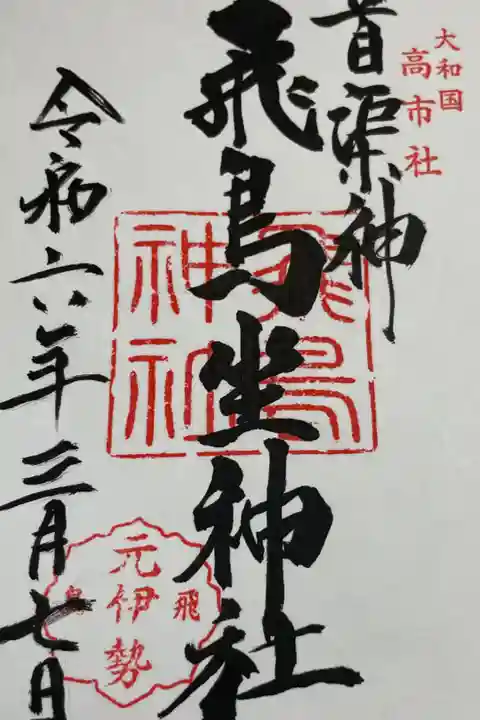 大和国
高市社
首渠神
飛鳥坐神社
飛鳥
神社
令和六年三月七日
飛鳥
元伊勢